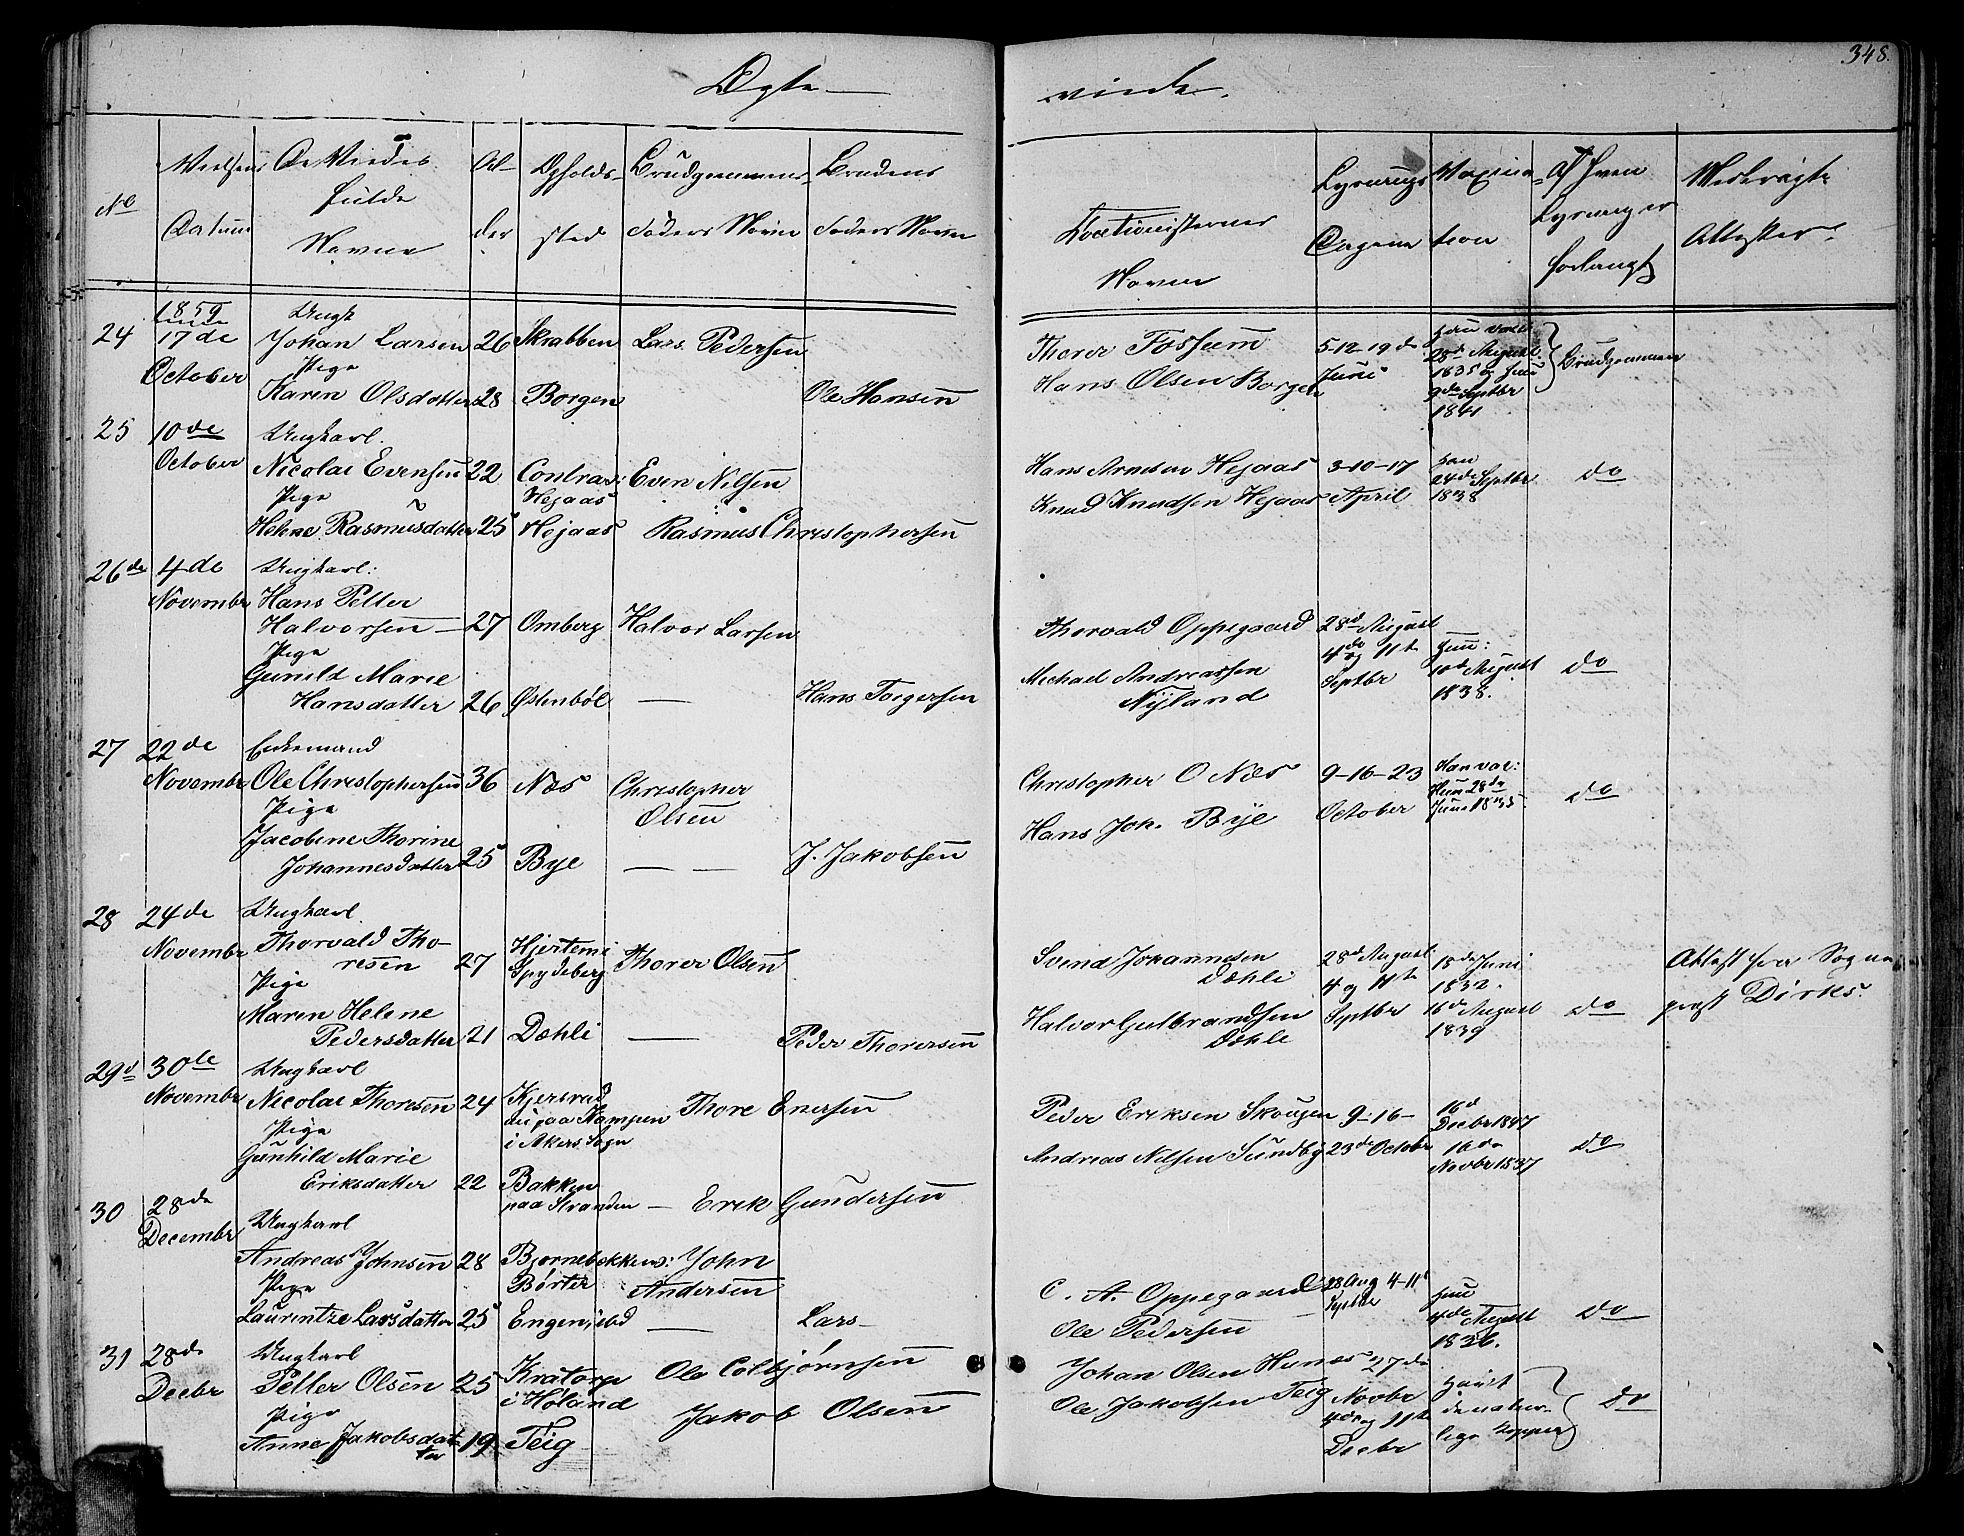 348.
Ægte —
viede.
No
Vielsens Datum
De Viedes fulde Navne
Alder
Opholds-sted
Brudgommens Faders Navn
Brudens Faders Navn
Forlovernes
Navne
Lysnings Dagene
Vaxination
Af hvem Lysning er forlangt
Merkværdige Attester
1859
24 17de October
Ungk
Johan Larsen 26 Skrabben Lars Pedersen
Pige
Karen Olsdatter 28 Borgen Ole Hansen
Thorer Fossum
Hans Olsen Borgen
5-12-19de Juni
28de August
1835 og hun
9de Septbr
1841
Brudgommen
25 10de October
Ungkarl.
Nicolai Evensen 22 Even Nilsen
Hejaas
Pige
Helene Rasmusdatter 25 Hejaas Rasmus Christophersen
Hans Arnesen Hejaas
Knud Knudsen Hejaas
3-10-17 April
24de Septbr
1838
do
26de 4de Novembr
Ungkarl:
Hans Petter
Halvorsen — 27 Omberg Halvor Larsen
Pige
Gunild Marie
Hansdatter 26 Østenböl — Hans Torgersen
Thorvald Oppegaard
Michael Andreassen
Nÿland
28de August
4de og 11te
Septbr
hun:
10de August
1838.
do
27 22de Novembr
Enkemand
Ole Christophersen 36 Næs Christopher
Olsen
Pige
Jacobine Thorine
Johannesdatter 25 Bye — — J. Jakobsen
Christopher O Næs
Hans Joh. Bye
9-16-23
October
Han vac:
Hun 28de
Juni 1835
do
28 24de Novembr
Ungkarl
Thorvald Tho-
resen 27 Spydeberg Thorer Olsen
Pige
Maren Helene
Pedersdatter 21 Dæhli — Peder Thorersen
Svend Johannesen
Dæhli
Halvor Gulbrandsen
Dæhle
28de August
4 og 11te
Septbr
18de Juni
1832.
16de August
1839
do
Attest fra Sogne-
prest Dirks.
29de 30te Novembr
Ungkarl
Nicolai Thoresen 24 Kjersrud Thore Enersen
i Akers Sogn
Pige
Gunhild Marie
Eriksdatter 22 Bakken
paa Stranden — Erik Gundersen
Peder Eriksen Skougen
Andreas Nilsen Sundby
9-16-
23de Octobr
16de
Decbr 1847
16de
Novbr 1837
do
30 28de Decembr
Ungkarl
Andreas Johnsen 28 Bjørnebekken: John
Børter Andersen
Pige
Laurentze Larsdatter 25 Engen, ibd — Lars —
C. A. Oppegaard
Ole Pedersen
28 Aug 4-11te
Septbr
hun
4de August
1836.
do
31 28de Decbr
Ungkarl
Petter Olsen 25 Kratorp Ole Colbjørnsen
i Høland
Pige
Anne Jakobsdat-
ter 19 Teig Jakob Olsen
Johan Olsen Hunæs
Ole Jakobsen Teig
27de
Novbr
4de og 11te
Decbr
havt
de natur-
lige Kopper
do